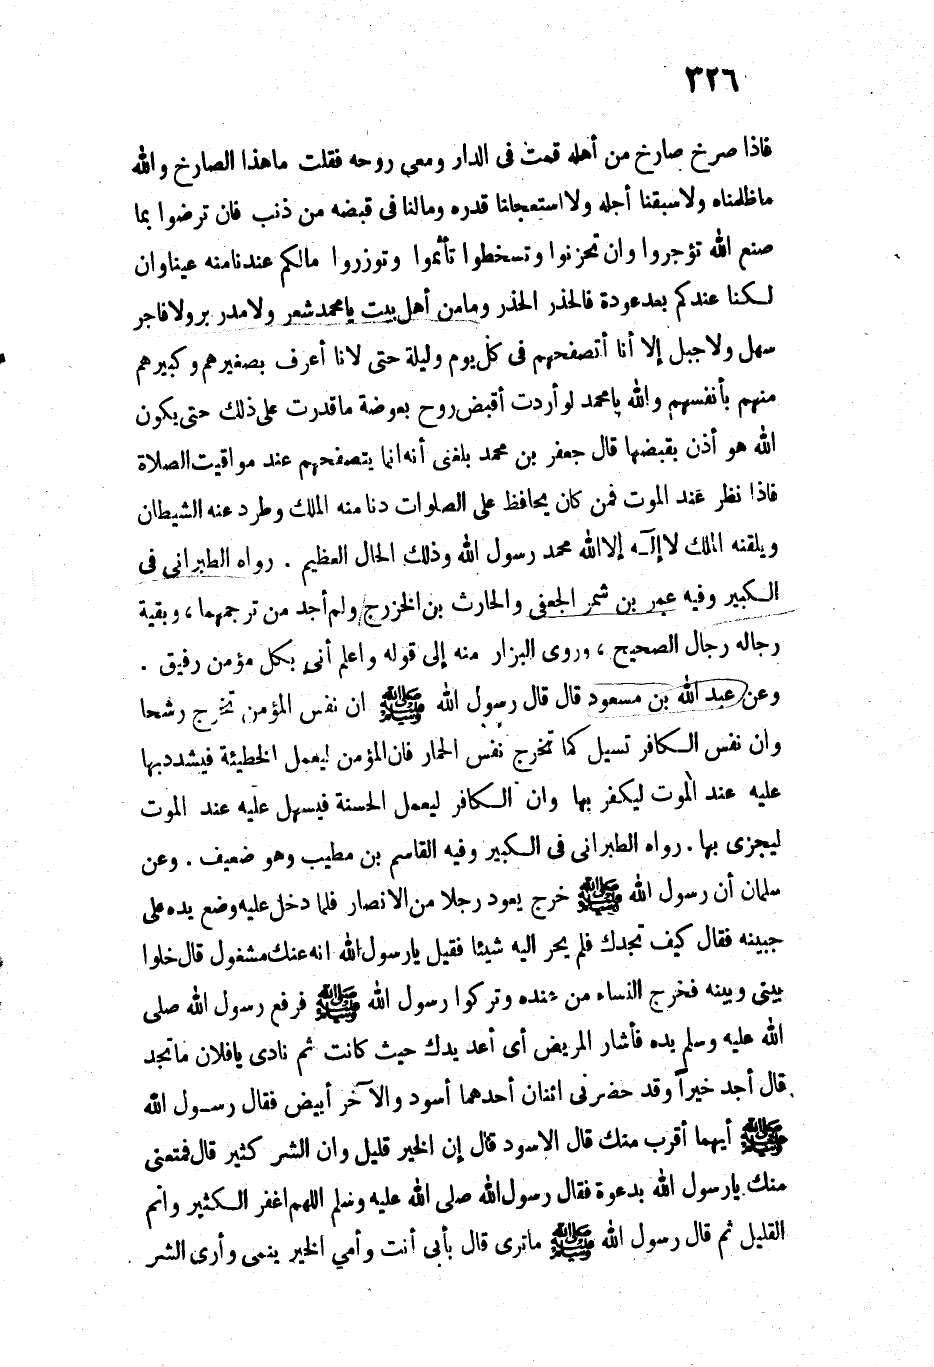 ٣٢٦
فاذا صرخ صارخ من أهله قمت فى الدار ومعى روحه فقلت ماهذا الصارخ والله
ماظلمناه ولاسبقنا أجله ولااستعجلنا قدره ومالنا فى قبضه من ذنب فان ترضوا بما
صنع الله تؤجروا وان تحزنوا وتسخطوا تأثموا وتوزروا مالكم عندنا منه عينا وان
لكنا عندكم بعد عودة فالحذر الحذر ومامن أهل بيت يامحمد شعر ولامدر بر ولافاجر
سهل ولاجبل إلا أنا أتصفحهم فى كل يوم وليلة حتى لانا أعرف بصغيرهم وكبيرهم
منهم بأنفسهم والله يامحمد لو أردت أقبض روح بعوضة ماقدرت على ذلك حتى يكون
الله هو أذن بقبضها قال جعفر بن محمد بلغنى أنه انما يتصفحهم عند مواقيت الصلاة
فاذا نظر عند الموت فمن كان يحافظ على الصلوات دنا منه الملك وطرد عنه الشيطان
ويلقنه الملك لاإله إلا الله محمد رسول الله وذلك الحال العظيم . رواه الطبرانى فى
الكبير وفيه عمر بن شمر الجعفى والحارث بن الخزرج ولم أجد من ترجمهما ، وبقية
رجاله رجال الصحيح ، وروى البزار منه إلى قوله واعلم أنى بكل مؤمن رفيق .
وعن عبد الله بن مسعود قال قال رسول الله ﷺ ان نفس المؤمن تخرج رشحا
وان نفس الكافر تسيل كما تخرج نفس الحمار فان المؤمن ليعمل الخطيئة فيشدد بها
عليه عند الموت ليكفر بها وان الكافر ليعمل الحسنة فيسهل عليه عند الموت
ليجزى بها . رواه الطبرانى فى الكبير وفيه القاسم بن مطيب وهو ضعيف . وعن
سلمان أن رسول الله ﷺ خرج يعود رجلا من الانصار فلما دخل عليه وضع يده على
جبينه فقال كيف تجدك فلم يحر اليه شيئا فقيل يارسول الله انه عنك مشغول قال خلوا
بينى وبينه فخرج النساء من عنده وتركوا رسول الله ﷺ فرفع رسول الله صلى
الله عليه وسلم يده فأشار المريض أى أعد يدك حيث كانت ثم نادى يافلان ماتجد
قال أجد خيراً وقد حضرنى اثنان أحدهما أسود والآخر أبيض فقال رسول الله
ﷺ أيهما أقرب منك قال الاسود قال إن الخير قليل وان الشر كثير قال فمتعنى
منك يارسول الله بدعوة فقال رسول الله صلى الله عليه وسلم اللهم اغفر الكثير وانم
القليل ثم قال رسول الله ﷺ ماترى قال بأبى أنت وأمي الخير ينمى وأرى الشر